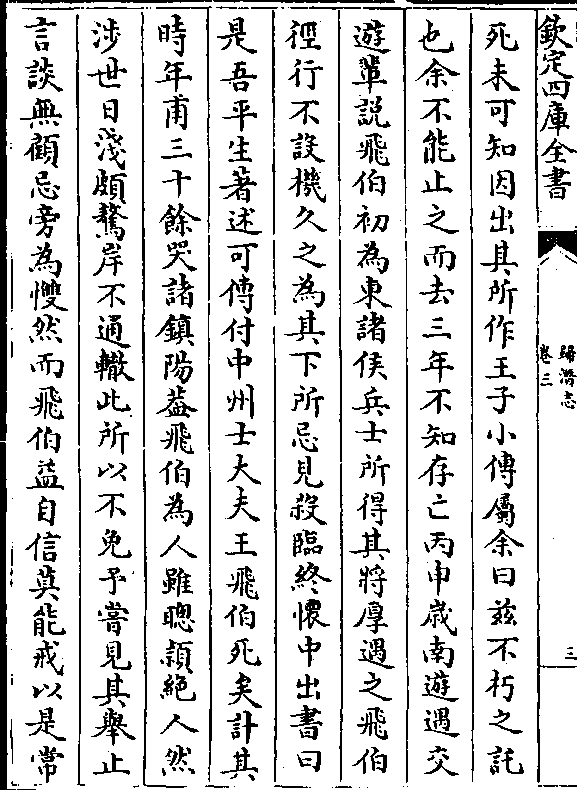 欽定四庫全書
歸潛志
卷三
三
死未可知因出其所作王子小傳屬余曰兹不朽之託
也余不能止之而去三年不知存亡丙申歲南遊遇交
遊輩説飛伯初為東諸侯兵士所得其將厚遇之飛伯
徑行不設機久之為其下所忌見殺臨終懷中出書曰
是吾平生著述可傳付中州士大夫王飛伯死矣計其
時年甫三十餘哭諸鎮陽葢飛伯為人雖聰頴絶人然
涉世日淺頗驁岸不通轍此所以不免予嘗見其舉止
言談無顧忌旁為戄然而飛伯益自信莫能戒以是常